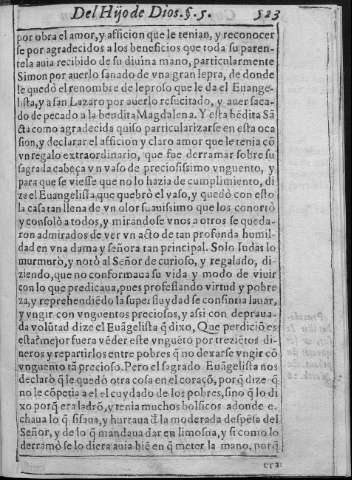 Del Hijo de Dios. §. 5. 523
por obra el amor, y aficion que le tenian, y reconocer
se por agradecidos a los beneficios que toda su paren-
tela auia recibido de su diuina mano, particularmente
Simon por auerlo sanado de vna gran lepra, de donde
le quedó el renombre de leproso que le da el Euange-
lista, y a san Lazaro por auerlo resucitado, y auer saca-
do de pecado a la bendita Magdalena. Y esta bēdita Sā
cta como agradecida quiso particularizarse en esta oca
sion, y declarar el afficion y claro amor que le tenia cō
vn regalo extraordinario, que fue derramar sobre su
sagrada cabeça vn vaso de preciosissimo vnguento, y
para que se viesse que no lo hazia de cumplimiento, di
ze el Euangelista, que quebrò el vaso, y quedò con esto
la casa tan llena de vn olor suauissimo que los conortò
y consolò a todos, y mirandose vnos a otros se queda-
ron admirados de ver vn acto de tan profunda humil-
dad en vna dama y señora tan principal. Solo Iudas lo
murmurò, y notò al Señor de curioso, y regalado, di-
ziendo, que no conformaua su vida y modo de viuir
con lo que predicaua, pues professando virtud y pobre
za, y reprehendiēdo la superfluydad se consintia lauar,
y vngir con vnguentos preciosos, y assi con deprаua-
da volūtad dize el Euāgelista q̄ dixo, Que perdiciō es
esta? mejor fuera vēder este vnguēto por treziētos di-
neros y repartirlos entre pobres q̄ no dexarse vngir cō
vnguento tā precioso. Pero el sagrado Euāgelista nos
declarò q̄ le quedó otra cosa en el coraçō, porq̄ dize q̄
no le cōpetia a el el cuydado de los pobres, sino q̄ lo di
xo porq̄ era ladrō, y tenia muchos bolsicos adonde e-
chaua lo q̄ sisaua, y hurtaua d̄ la moderada despēsa del
Señor, y de lo q̄ mandaua dar en limosna, y si como lo
derramò se lo diera auia biē en q̄ meter la mano, porq̄